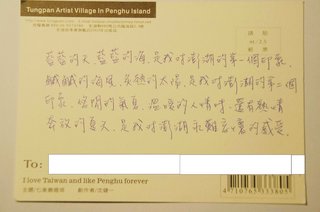 Tungpan Artist Village In Penghu Island
藍藍的天,藍藍的海,是我對澎湖的第一個印象.
鹹鹹的海風,炙熱的太陽,是我對澎湖的第二個
印象,悠閒的氣息,溫暖的人情味,還有熱情
奔放的夏天,是我對澎湖永難忘懷的感受.
To:
I love Taiwan and like Penghu forever
4 710765 313805